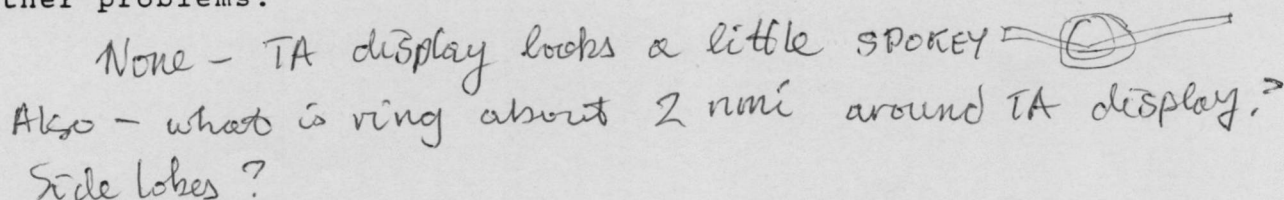 ther problems:
None - TA display looks a little SPOKEY
Also - what is ring about 2 nmi around TA display?
Side lobes?